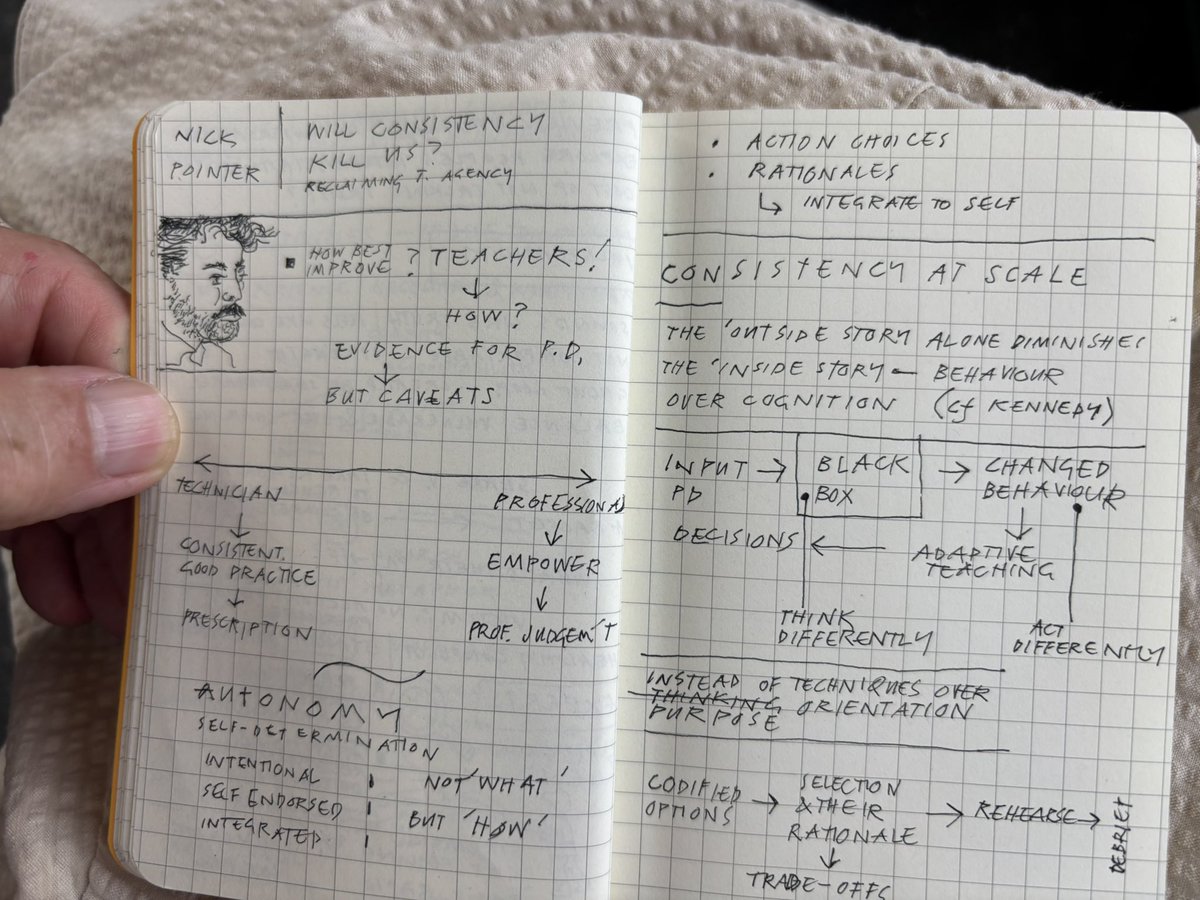 NICK
POINTER
WILL CONSISTENCY
KILL US?
RECLAIMING T. AGENCY
HOW BEST
IMPROVE ? TEACHERS!
HOW?
EVIDENCE FOR P.D,
BUT CAVEATS
TECHNICIAN
CONSISTENT.
GOOD PRACTICE
PRESCRIPTION
PROFESSIONAL
EMPOWER
PROF. JUDGEM'T
AUTONOMY
SELF-DETERMINATION
INTENTIONAL
SELF ENDORSED
INTEGRATED
NOT 'WHAT'
BUT 'HOW'
• ACTION CHOICES
• RATIONALES
INTEGRATE TO SELF
CONSISTENCY AT SCALE
THE 'OUTSIDE STORY ALONE DIMINISHES
THE 'INSIDE STORY – BEHAVIOUR
OVER COGNITION (cf KENNEDY)
INPUT
PD
BLACK
BOX
CHANGED
BEHAVIOUR
DECISIONS
ADAPTIVE
TEACHING
THINK
DIFFERENTLY
ACT
DIFFERENTLY
INSTEAD OF TECHNIQUES OVER
THINKING ORIENTATION
PURPOSE
CODIFIED
OPTIONS
SELECTION
& THEIR
RATIONALE
REHEARSE
DEBRIEF
TRADE-OFFS